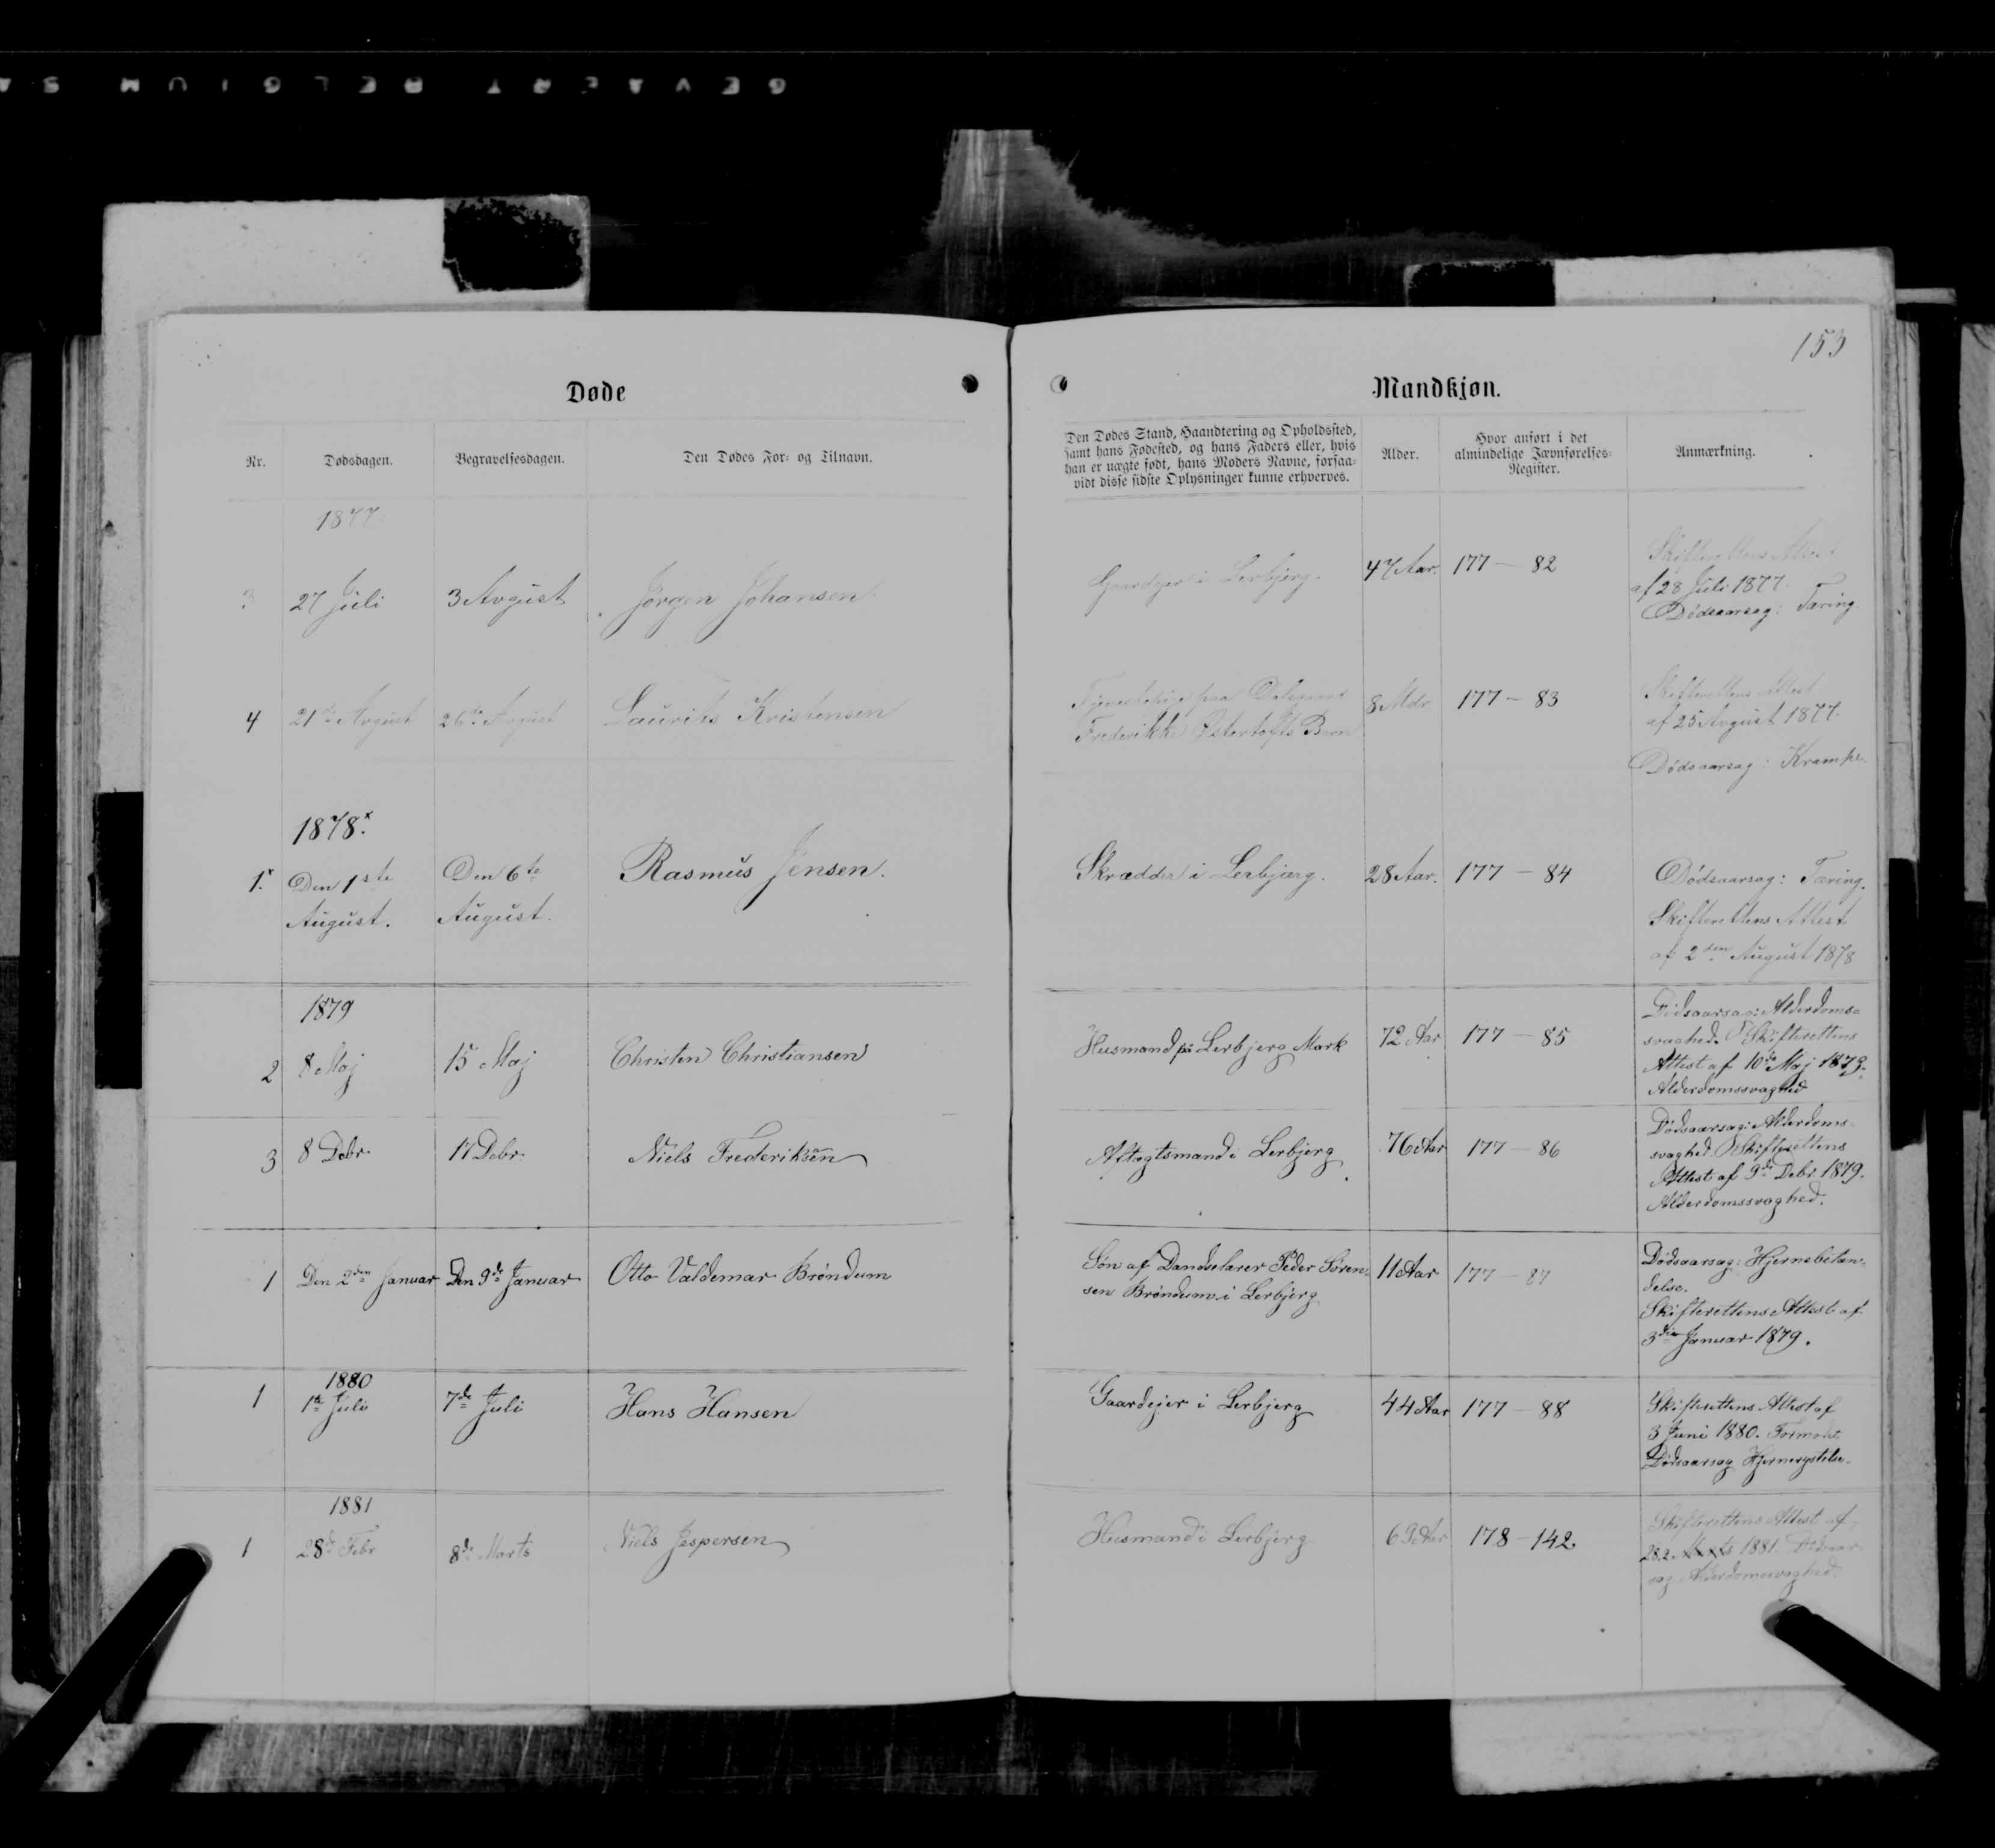 GEVAERT BELGIUM SA
153
Døde
Mandkjøn.
Nr.
Dødsdagen.
Begravelsesdagen.
Den Dødes For- og Tilnavn.
Den Dødes Stand, Haandtering og Opholdssted,
samt hans Fødested, og hans Faders eller, hvis
han er uægte født, hans Moders Navne, forsaa-
vidt disse sidste Oplysninger kunne erhverves.
Alder.
Hvor anført i det
almindelige Jævnførelses-
Register.
Anmærkning.
1877
3
27 Juli
3 Avgust
Jørgen Johansen.
Gaardejer i Lerbjerg.
47 Aar.
177 — 82
Skifterettens Attest
af 28 Juli 1877.
Dødsaarsag: Tæring.
4
21de Avgust
26de Avgust
Laurits Kristensen
Tjenestepige paa
Frederikke Østertofts Barn
8 Mdr.
177 — 83
Skifterettens Attest
af 25 Avgust 1877.
Dødsaarsag: Krampe.
1878x.
1x.
Den 1ste
August.
Den 6te
August.
Rasmus Jensen.
Skrædder i Lerbjærg.
28 Aar.
177 — 84
Dødsaarsag: Tæring.
Skifterettens Attest
af 2den August 1878
1879
2
8 Maj
15 Maj
Christen Christiansen
Husmand på Lerbjerg Mark
72 Aar
177 — 85
Dødsaarsag: Alderdoms-
svaghed. Skifterettens
Attest af 10de Maj 1879.
Alderdomssvaghed
3
8 Debr.
17 Debr.
Niels Frederiksen
Aftægtsmand i Lerbjerg.
76 Aar
177 — 86
Dødsaarsag: Alderdoms-
svaghed. Skifterettens
Attest af 9de Debr. 1879.
Alderdomssvaghed.
1
Den 2den Januar
Den 9de Januar
Otto Valdemar Brøndum
Søn af Dandselærer Peder Søren-
sen Brøndum i Lerbjerg
11 Aar
177 — 87
Dødsaarsag: Hjernebetæn-
delse.
Skifterettens Attest af
3die Januar 1879.
1880
1
1ste Juli
7de Juli
Hans Hansen
Gaardejer i Lerbjerg
44 Aar
177 — 88
Skifterettens Attest af
3 Juni 1880. Formodet
Dødsaarsag Hjernerystelse.
1881
1
28de Febr
8de Marts
Niels Jespersen
Husmand i Lerbjerg
69 Aar
178 — 142
Skifterettens Attest af
28.2. Marts 1881. Dødsaar-
sag Alderdomssvaghed.